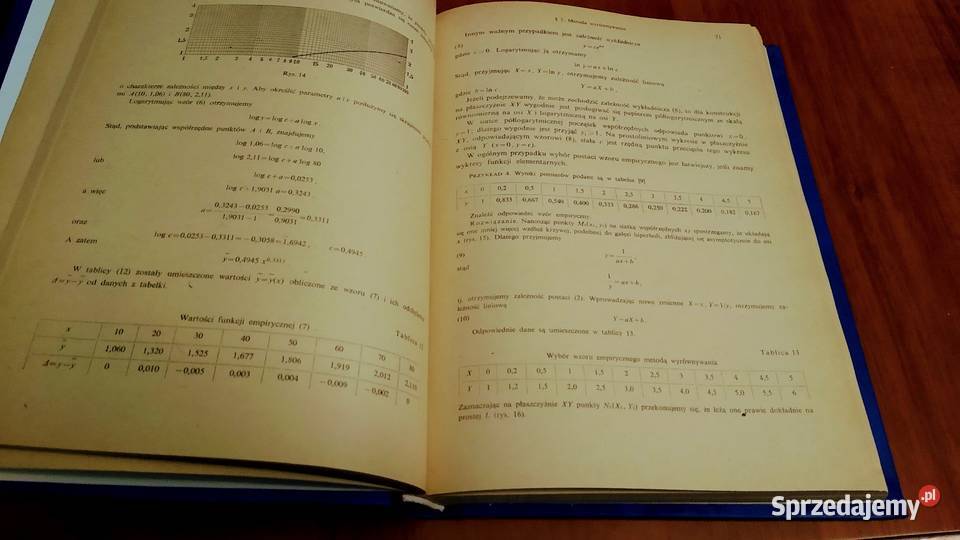 4
3
2
1,5
1
1 1,5 2 3 4 5 6 7 8 9 10 15 20 30 40 50 60 70 80 90 100
4
3
2
1,5
1
Rys. 14
o charakterze zależności między x i y. Aby określić parametry a i c posłużymy się
mi A(10, 1,06) i B(80, 2,11).
Logarytmując wzór (6) otrzymujemy
log y = log c + a log x.
Stąd, podstawiając współrzędne punktów A i B, znajdujemy
log 1,06 = log c + a log 10,
log 2,11 = log c + a log 80
lub
log c + a = 0,0253
log c + 1,9031 a = 0,3243
a więc
a = (0,3243 − 0,0253)/(1,9031 − 1) = 0,2990/0,9031 = 0,3311
oraz
log c = 0,0253 − 0,3311 = −0,3058 = 1̄,6942, c = 0,4945
A zatem
ȳ = 0,4945 x^0,3311
W tablicy (12) zostały umieszczone wartości ȳ = ȳ(x) obliczone ze wzoru (7) i ich
Δ = y − ȳ od danych z tabelki.
Tablica 12
Wartości funkcji empirycznej (7)
x 10 20 30 40 50 60 70 80
ȳ 1,060 1,320 1,525 1,677 1,806 1,919 2,012
Δ = y − ȳ 0 0,010 −0,005 0,003 0,004 −0,009 −0,002 0
Metoda wyrównywania
71
Innym ważnym przypadkiem jest zależność wykładnicza
(8) y = ce^ax
gdzie c > 0. Logarytmując ją otrzymamy
ln y = ax + ln c.
Stąd, przyjmując X = x, Y = ln y, otrzymujemy zależność liniową
Y = aX + b,
gdzie b = ln c.
Jeżeli podejrzewamy, że może zachodzić zależność wykładnicza (8), to dla konstrukcji
na płaszczyźnie XY wygodnie jest posługiwać się papierem półlogarytmicznym ze skalą
równomierną na osi X i logarytmiczną na osi Y.
W siatce półlogarytmicznej początek współrzędnych odpowiada punktowi x = 0,
y = 1; dlatego wygodnie jest przyjąć y₀ = 1. Na prostoliniowym wykresie w płaszczyźnie
XY, odpowiadającym wzorowi (8), stała c jest rzędną punktu przecięcia tego wykresu
z osią Y (x = 0, y = c).
W ogólnym przypadku wybór postaci wzoru empirycznego jest łatwiejszy, jeśli znamy
wykresy funkcji elementarnych.
PRZYKŁAD 4. Wyniki pomiarów podane są w tabelce [9]
x 0 0,2 0,5 1 1,5 2 2,5 3 3,5 4 4,5 5
y 1 0,833 0,667 0,500 0,400 0,333 0,286 0,250 0,222 0,200 0,182 0,167
Znaleźć odpowiedni wzór empiryczny.
Rozwiązanie. Nanosząc punkty Mᵢ(xᵢ, yᵢ) na siatkę współrzędnych xy spostrzegamy, że układają
się one mniej więcej wzdłuż krzywej, podobnej do gałęzi hiperboli, zbliżającej się asymptotycznie do osi
x (rys. 15). Dlatego przyjmujemy
(9) y = 1/(ax + b)
stąd
1/y = ax + b,
tj. otrzymujemy zależność postaci (2). Wprowadzając nowe zmienne X = x, Y = 1/y, otrzymujemy za-
leżność liniową
(10) Y = aX + b.
Odpowiednie dane są umieszczone w tablicy 13.
Tablica 13
Wybór wzoru empirycznego metodą wyrównywania
X 0 0,2 0,5 1 1,5 2 2,5 3 3,5 4 4,5 5
Y 1 1,2 1,5 2,0 2,5 3,0 3,5 4,0 4,5 5,0 5,5 6
Zaznaczając na płaszczyźnie XY punkty Nᵢ(Xᵢ, Yᵢ) przekonujemy się, że leżą one prawie dokładnie na
prostej l. (rys. 16).
Sprzedajemy.pl